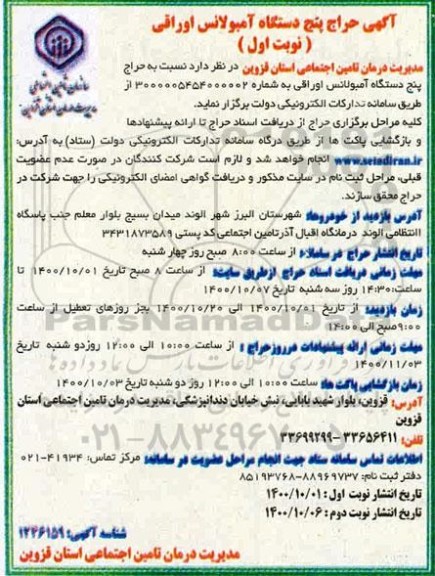 آگهی حراج پنج دستگاه آمبولانس اوراقی
( نوبت اول )
سازمان تامین اجتماعی
مدیریت درمان استان قزوین
مدیریت درمان تامین اجتماعی استان قزوین در نظر دارد نسبت به حراج
پنج دستگاه آمبولانس اوراقی به شماره ۳۰۰۰۰۰۵۴۵۴۰۰۰۰۰۲ از
طریق سامانه تدارکات الکترونیکی دولت برگزار نماید.
کلیه مراحل برگزاری حراج از دریافت اسناد حراج تا ارائه پیشنهادها
و بازگشایی پاکت ها از طریق درگاه سامانه تدارکات الکترونیکی دولت (ستاد) به آدرس:
www.setadiran.ir انجام خواهد شد و لازم است شرکت کنندگان در صورت عدم عضویت
قبلی، مراحل ثبت نام در سایت مذکور و دریافت گواهی امضای الکترونیکی را جهت شرکت در
حراج محقق سازند.
آدرس بازدید از خودروها: شهرستان البرز شهر الوند میدان بسیج بلوار معلم جنب پاسگاه
انتظامی الوند درمانگاه اقبال آذر تامین اجتماعی کد پستی ۳۴۳۱۸۷۳۵۸۹
تاریخ انتشار حراج در سامانه: از ساعت ۸:۰۰ صبح روز چهار شنبه
مهلت زمانی دریافت اسناد حراج از طریق سایت: از ساعت ۸ صبح تاریخ ۱۴۰۰/۱۰/۰۱ تا
ساعت ۱۴:۳۰ روز سه شنبه تاریخ ۱۴۰۰/۱۰/۰۷
زمان بازدید: از تاریخ ۱۴۰۰/۱۰/۰۱ الی ۱۴۰۰/۱۰/۲۰ بجز روزهای تعطیل از ساعت
۹:۰۰ صبح الی ۱۴:۰۰
مهلت زمانی ارائه پیشنهادات هر روز حراج : از ساعت ۱۰:۰۰ الی ۱۲:۰۰ روز دو شنبه تاریخ
۱۴۰۰/۱۱/۰۳
زمان بازگشایی پاکت ها: ساعت ۱۰:۰۰ الی ۱۲:۰۰ روز دو شنبه تاریخ ۱۴۰۰/۱۰/۰۳
آدرس: قزوین، بلوار شهید بابایی، نبش خیابان دندانپزشکی، مدیریت درمان تامین اجتماعی استان
قزوین
تلفن: ۳۳۶۵۶۴۱۱ -۳۳۶۹۹۲۹۹
اطلاعات تماس سامانه ستاد جهت انجام مراحل عضویت در سامانه: مرکز تماس: ۴۱۹۳۴-۰۲۱
دفتر ثبت نام: ۸۸۹۶۹۷۳۷-۸۵۱۹۳۷۶۸
تاریخ انتشار نوبت اول : ۱۴۰۰/۱۰/۰۱
تاریخ انتشار نوبت دوم : ۱۴۰۰/۱۰/۰۶
شناسه آگهی: ۱۲۴۶۱۵۹
مدیریت درمان تامین اجتماعی استان قزوین
ParsNamadData
۰۲۱-۸۸۳۴۹۶۷۰